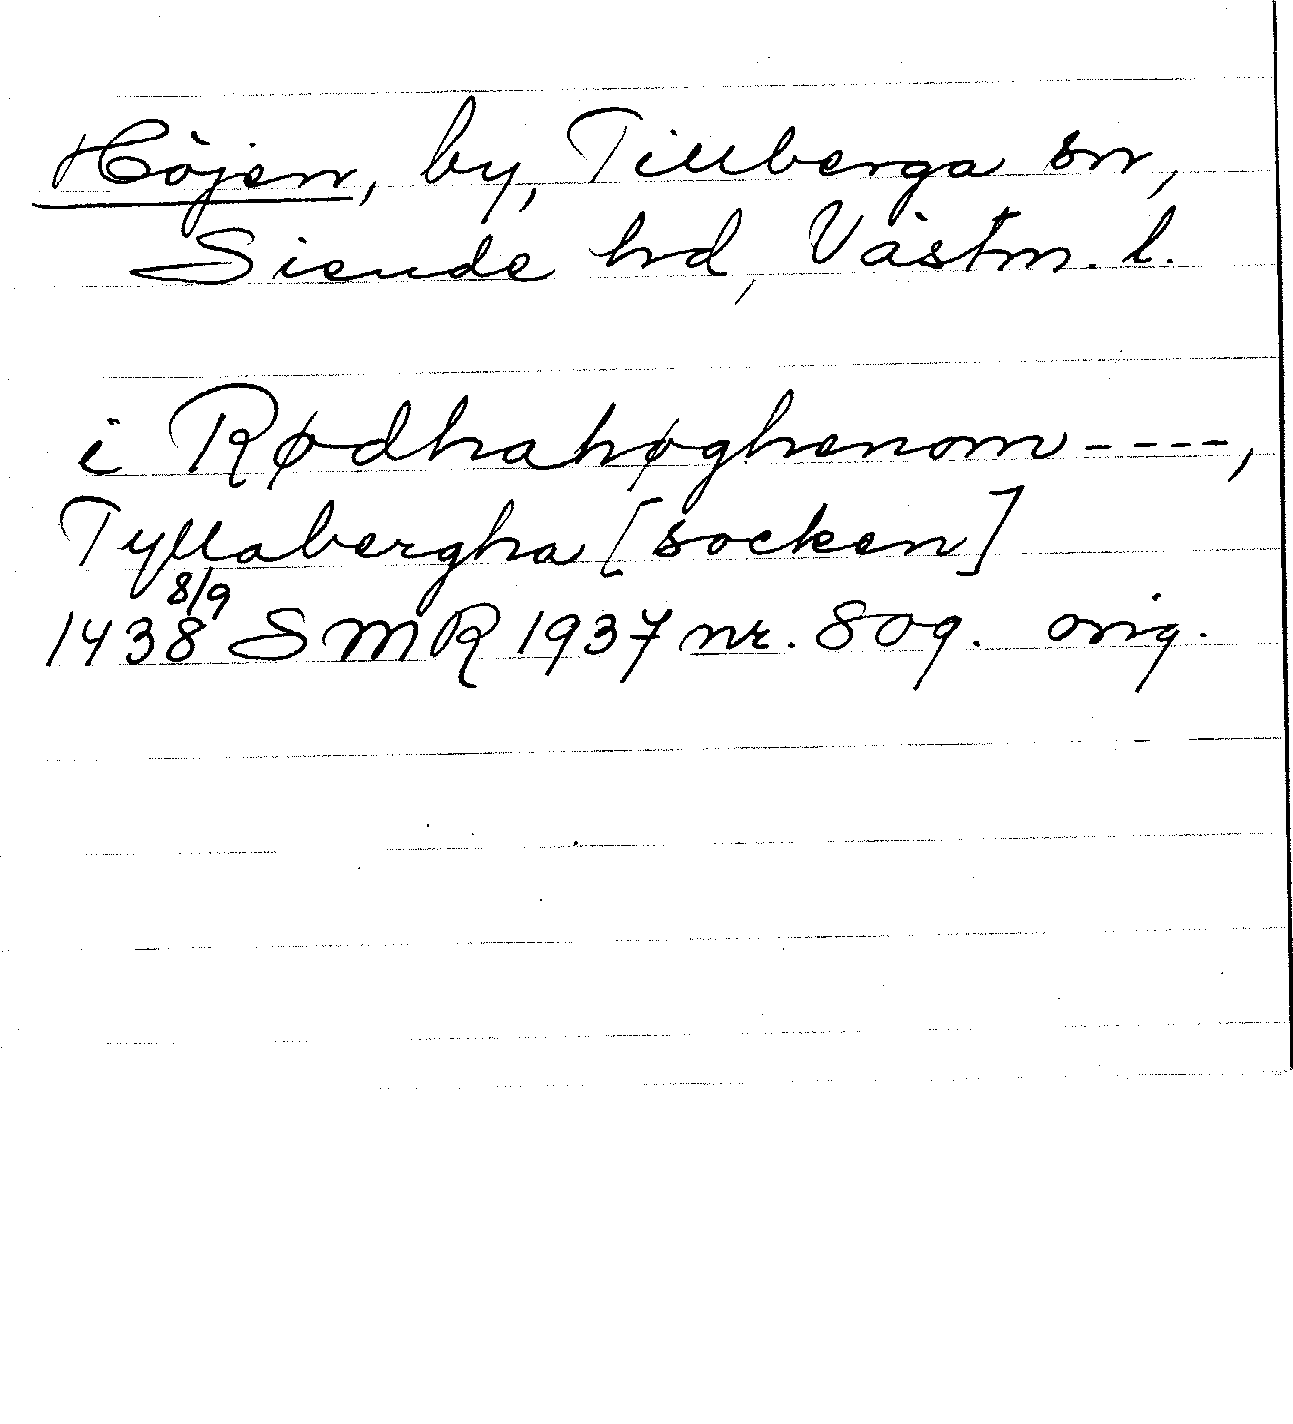 Höjen, by, Tillberga sn,
Siende hd, Västm. l.
i Rødhahøghenom ----,
Tyllabergha [socken]
1438 8/9 SMR 1937 nr. 809. orig.